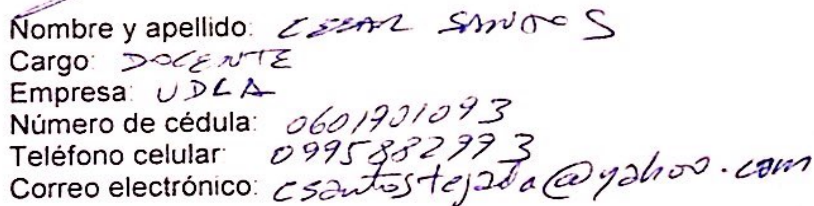 Nombre y apellido: CESAR SANTOS
Cargo: DOCENTE
Empresa: UDLA
Número de cédula: 0601901093
Teléfono celular: 0995882993
Correo electrónico: csantostejada@yahoo.com